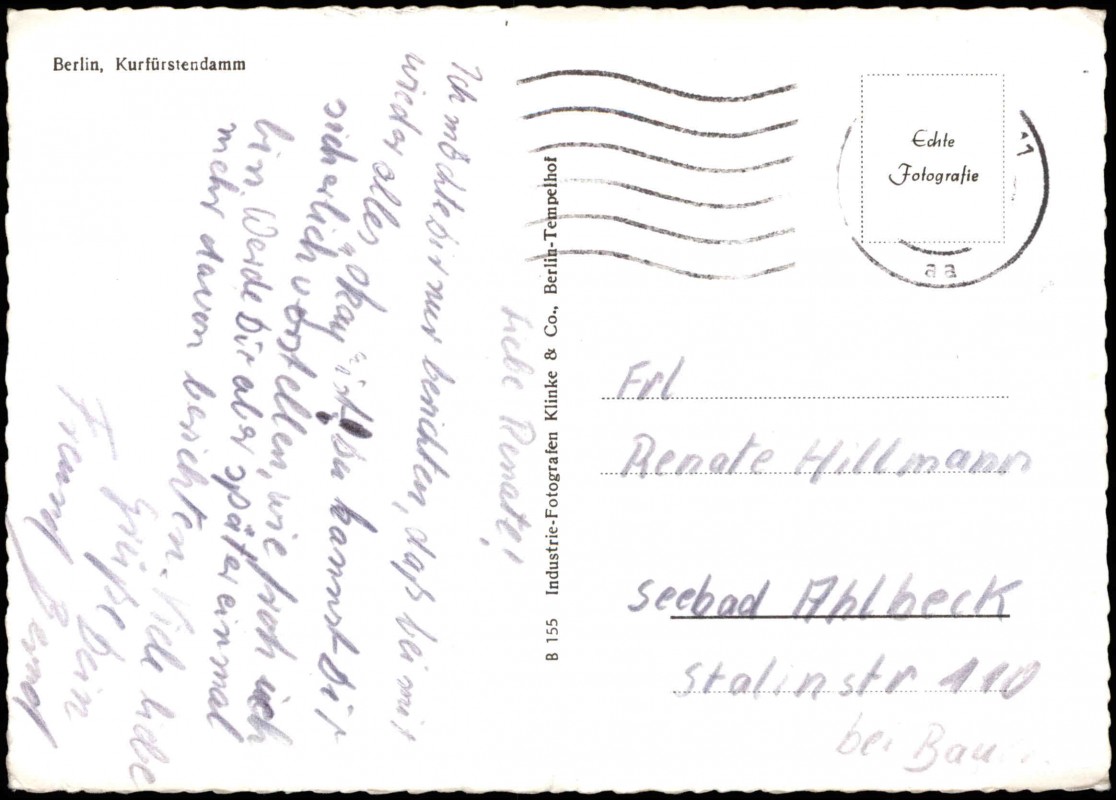 Berlin, Kurfürstendamm
Liebe Renate,
Ich möchte dir nur berichten, daß bei mir
wieder alles okay ist. Du kannst dir
sicherlich vorstellen, wie froh ich
bin. Werde Dir aber später einmal
mehr davon berichten. Viele liebe
Grüße Dein
Freund Bernd
B 155 Industrie-Fotografen Klinke & Co., Berlin-Tempelhof
Echte
Fotografie
aa
Frl
Renate Hillmann
Seebad Ahlbeck
Stalinstr 110
bei